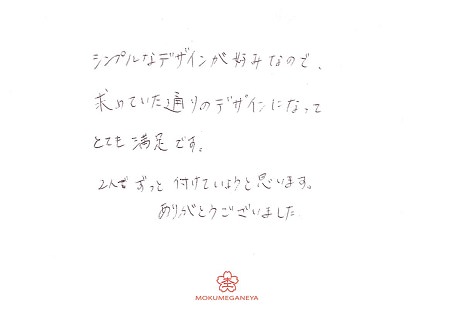 シンプルなデザインが好みなので、
求めていた通りのデザインになって
とても満足です。
2人でずっと付けていようと思います。
ありがとうございました
杢
MOKUMEGANEYA